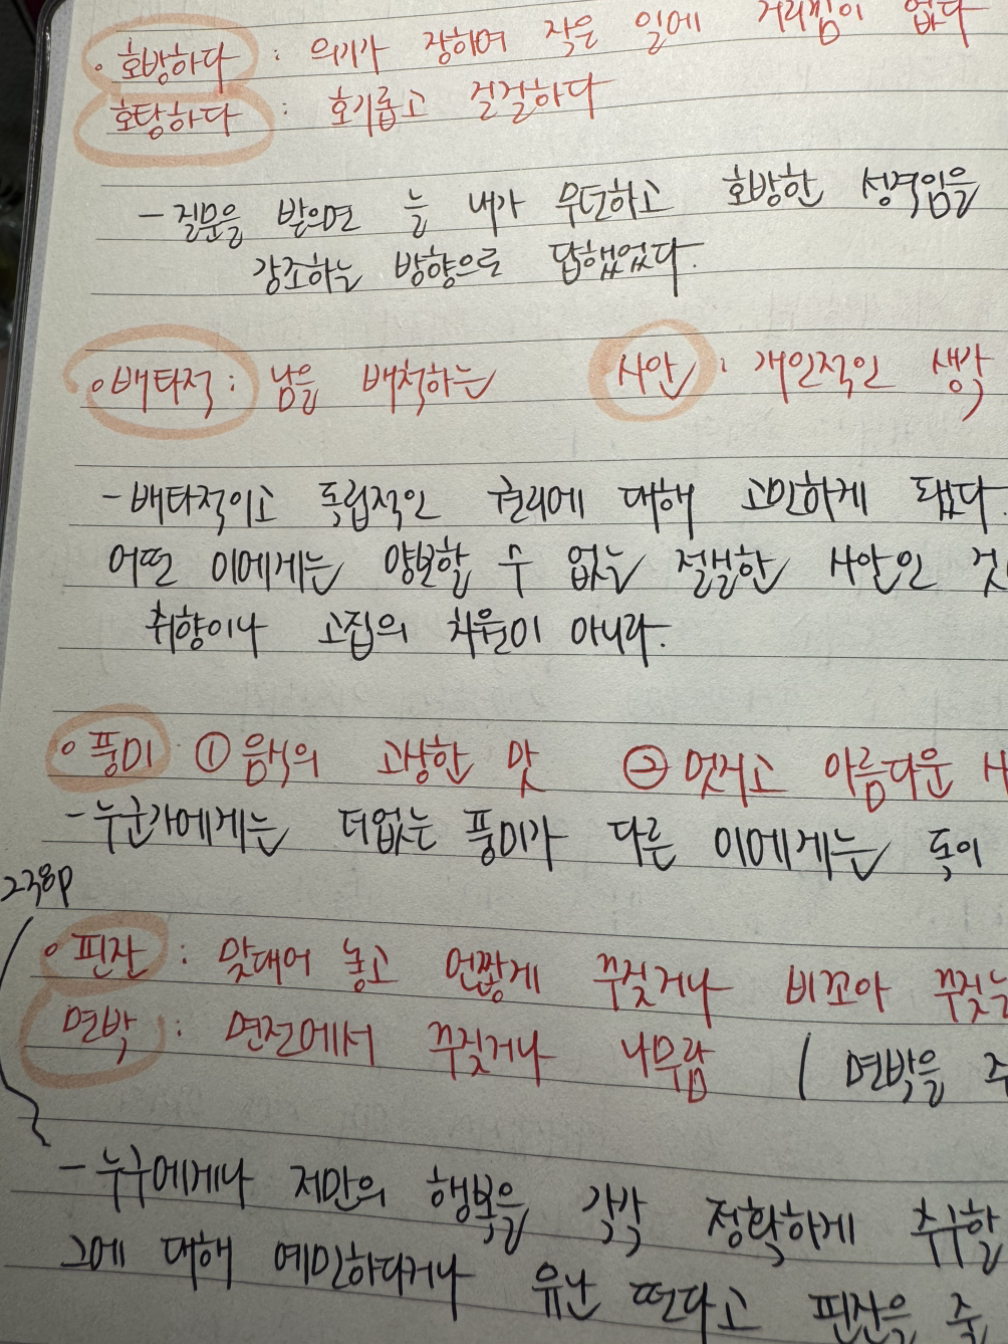 • 호방하다 : 의기가 장하여 작은 일에 거리낌이 없다
호탕하다 : 호기롭고 걸걸하다
- 질문을 받으면 늘 내가 무던하고 호방한 성격임을
강조하는 방향으로 답했었다.
• 배타적 : 남을 배척하는 사안 : 개인적인 생각
- 배타적이고 독립적인 권리에 대해 고민하게 됐다.
어떤 이에게는 양보할 수 없는 절실한 사안인 것
취향이나 고집의 차원이 아니라.
• 풍미 ① 음식의 고상한 맛 ② 멋지고 아름다운 사
- 누군가에게는 더없는 풍미가 다른 이에게는 독이
238p
• 핀잔 : 맞대어 놓고 언짢게 꾸짖거나 비꼬아 꾸짖는
면박 : 면전에서 꾸짖거나 나무람 ( 면박을 주
- 누구에게나 제만의 행복을 각각 정확하게 취할
그에 대해 예민하다거나 유난 떤다고 핀잔을 줄